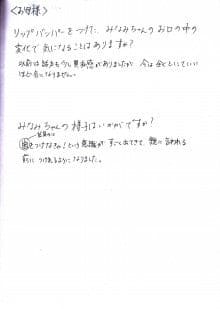 ＜お母様＞
リップバンパーをつけた、みなみちゃんのお口の中の
変化で気になることはありますか?
以前は話すも少し異和感がありましたが、今は全くといっていい
ほど気になりません。
みなみちゃんの様子はいかがですか?
をつけなきゃ!という意識がすごく出てきて、親に言われる
前につけれるようになりました。